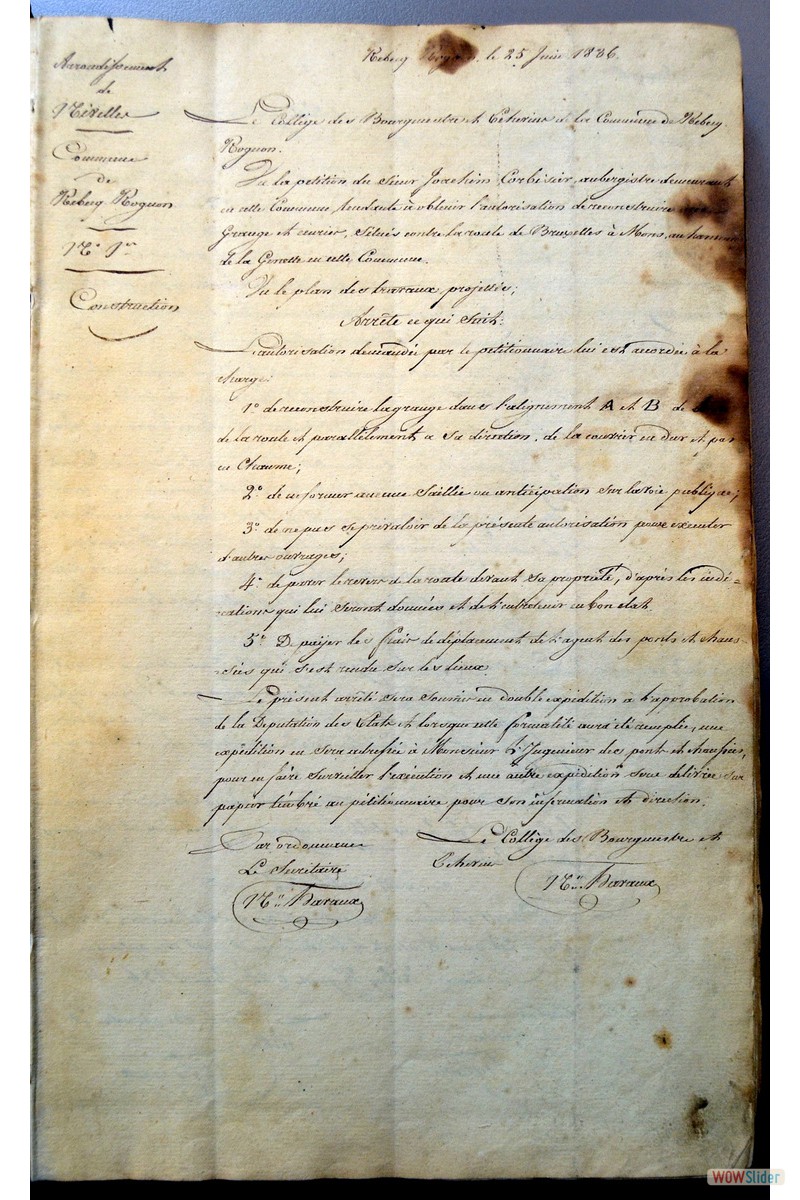 Rebecq Rognon, le 25 Juin 1836.
Arrondissement
de
Nivelles
Commune
de
Rebecq Rognon
N° 1er
Construction
Le Collège des Bourgmestre et Echevins de la Commune de Rebecq
Rognon.
Vu la petition du Sieur Joachim Corbisier, aubergiste demeurant
en cette Commune, tendante à obtenir l'autorisation de reconstruire
Grange et écuries, situés contre la route de Bruxelles à Mons, au hameau
de la Genette en cette Commune.
Vu le plan des travaux projettés;
Arrête ce qui suit:
L'autorisation demandée par le petitionnaire lui est accordée à la
charge:
1° de reconstruire la grange dans l'alignement A et B de
de la route et parallèlement a sa direction, de la couvrir en dur et pas
en Chaume;
2° de ne former aucune Saillie ou anticipation sur la voie publique;
3° de ne pas se prévaloir de la présente autorisation pour executer
d'autres ouvrages;
4° de paver le revers de la route devant sa propriété, d'après les indi=
=cations qui lui seront données et de l'entretenir en bon état.
5° De paijer les frais de déplacement de l'agent des ponts et chaus=
=sées qui s'est rendu sur les lieux.
Le présent arrêté sera soumis en double expédition à l'approbation
de la Députation des Etats et lorsque cette formalité aura été remplie, une
expédition en sera adressée à Monsieur l'Ingenieur des ponts et chaussées,
pour en faire surveiller l'exécution et une autre expédition sera délivrée sur
papier timbré au pétitionnaire pour son information et direction.
Par ordonnance
Le Secrétaire
Le Collège des Bourgmestre et
Echevins
Havaux
Havaux
WOWSlider